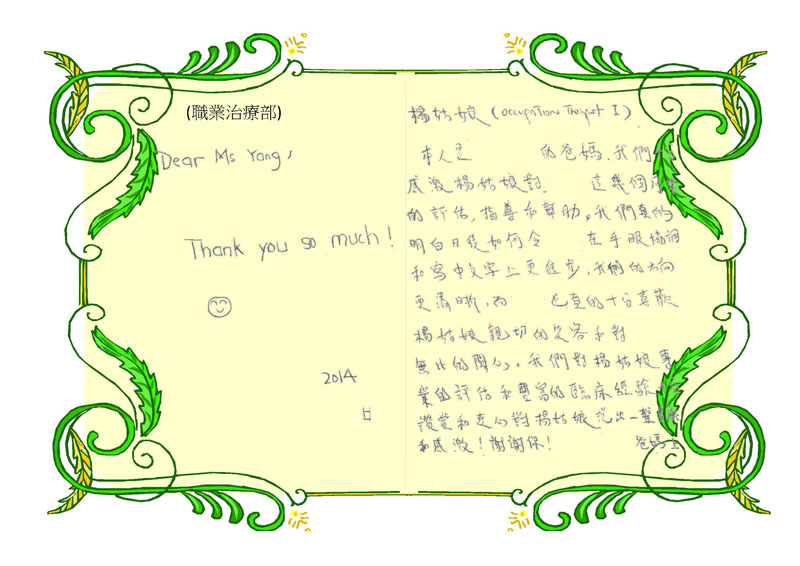 (職業治療部)
Dear Ms Yang,
Thank you so much!
2014
日
楊姑娘 (Occupations Therapist I)
本人是 的爸媽,我們
感激楊姑娘對 這幾個
的評估,指導和幫助。我們真的
明白日後如何令 在手眼協調
和寫中文字上更進步,我們的方向
更清晰,而 也真的十分喜歡
楊姑娘親切的笑容和對
無比的關心。我們對楊姑娘專
業的評估和豐富的臨床經驗
讚賞和衷心對楊姑娘說出一聲
和感激!謝謝你!
爸媽上